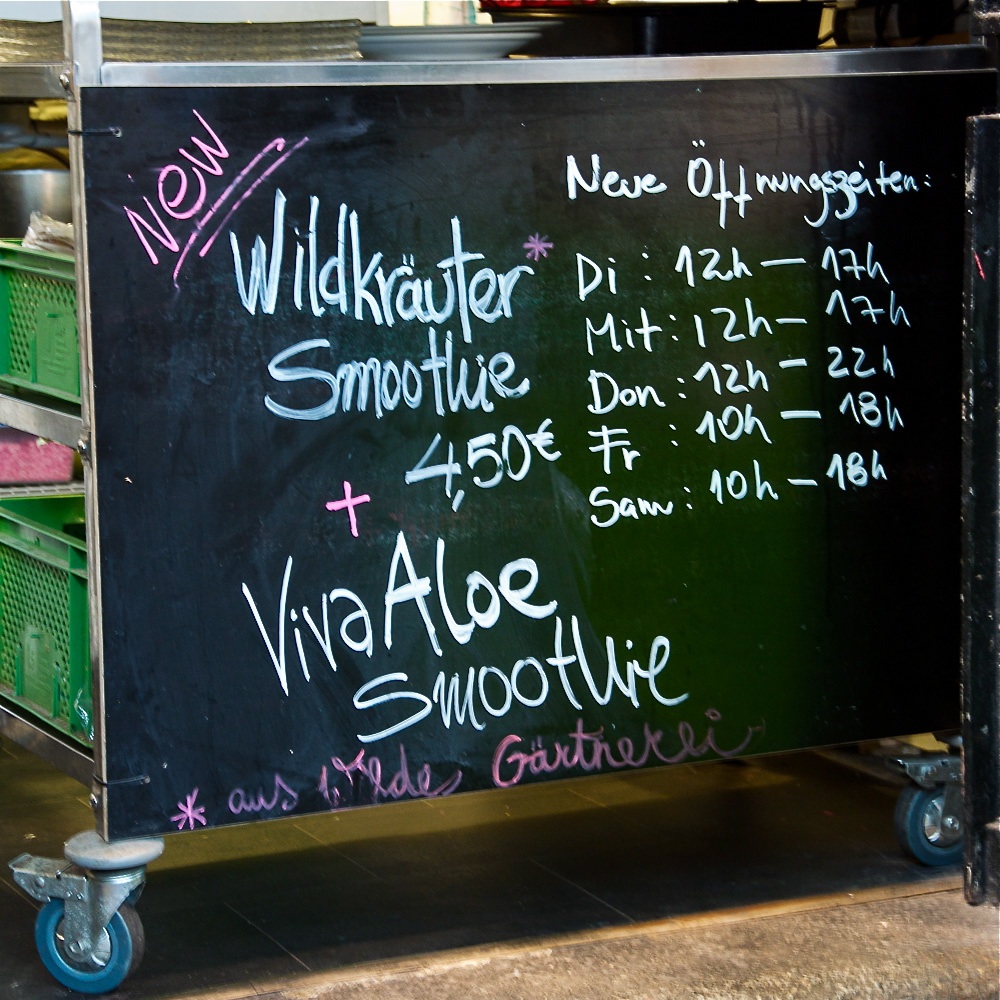 New
Wildkräuter*
Smoothie
4,50€
+
Viva Aloe
Smoothie
* aus Wilde Gärtnerei
Neue Öffnungszeiten:
Di : 12h – 17h
Mit : 12h – 17h
Don : 12h – 22h
Fr : 10h – 18h
Sam : 10h – 18h